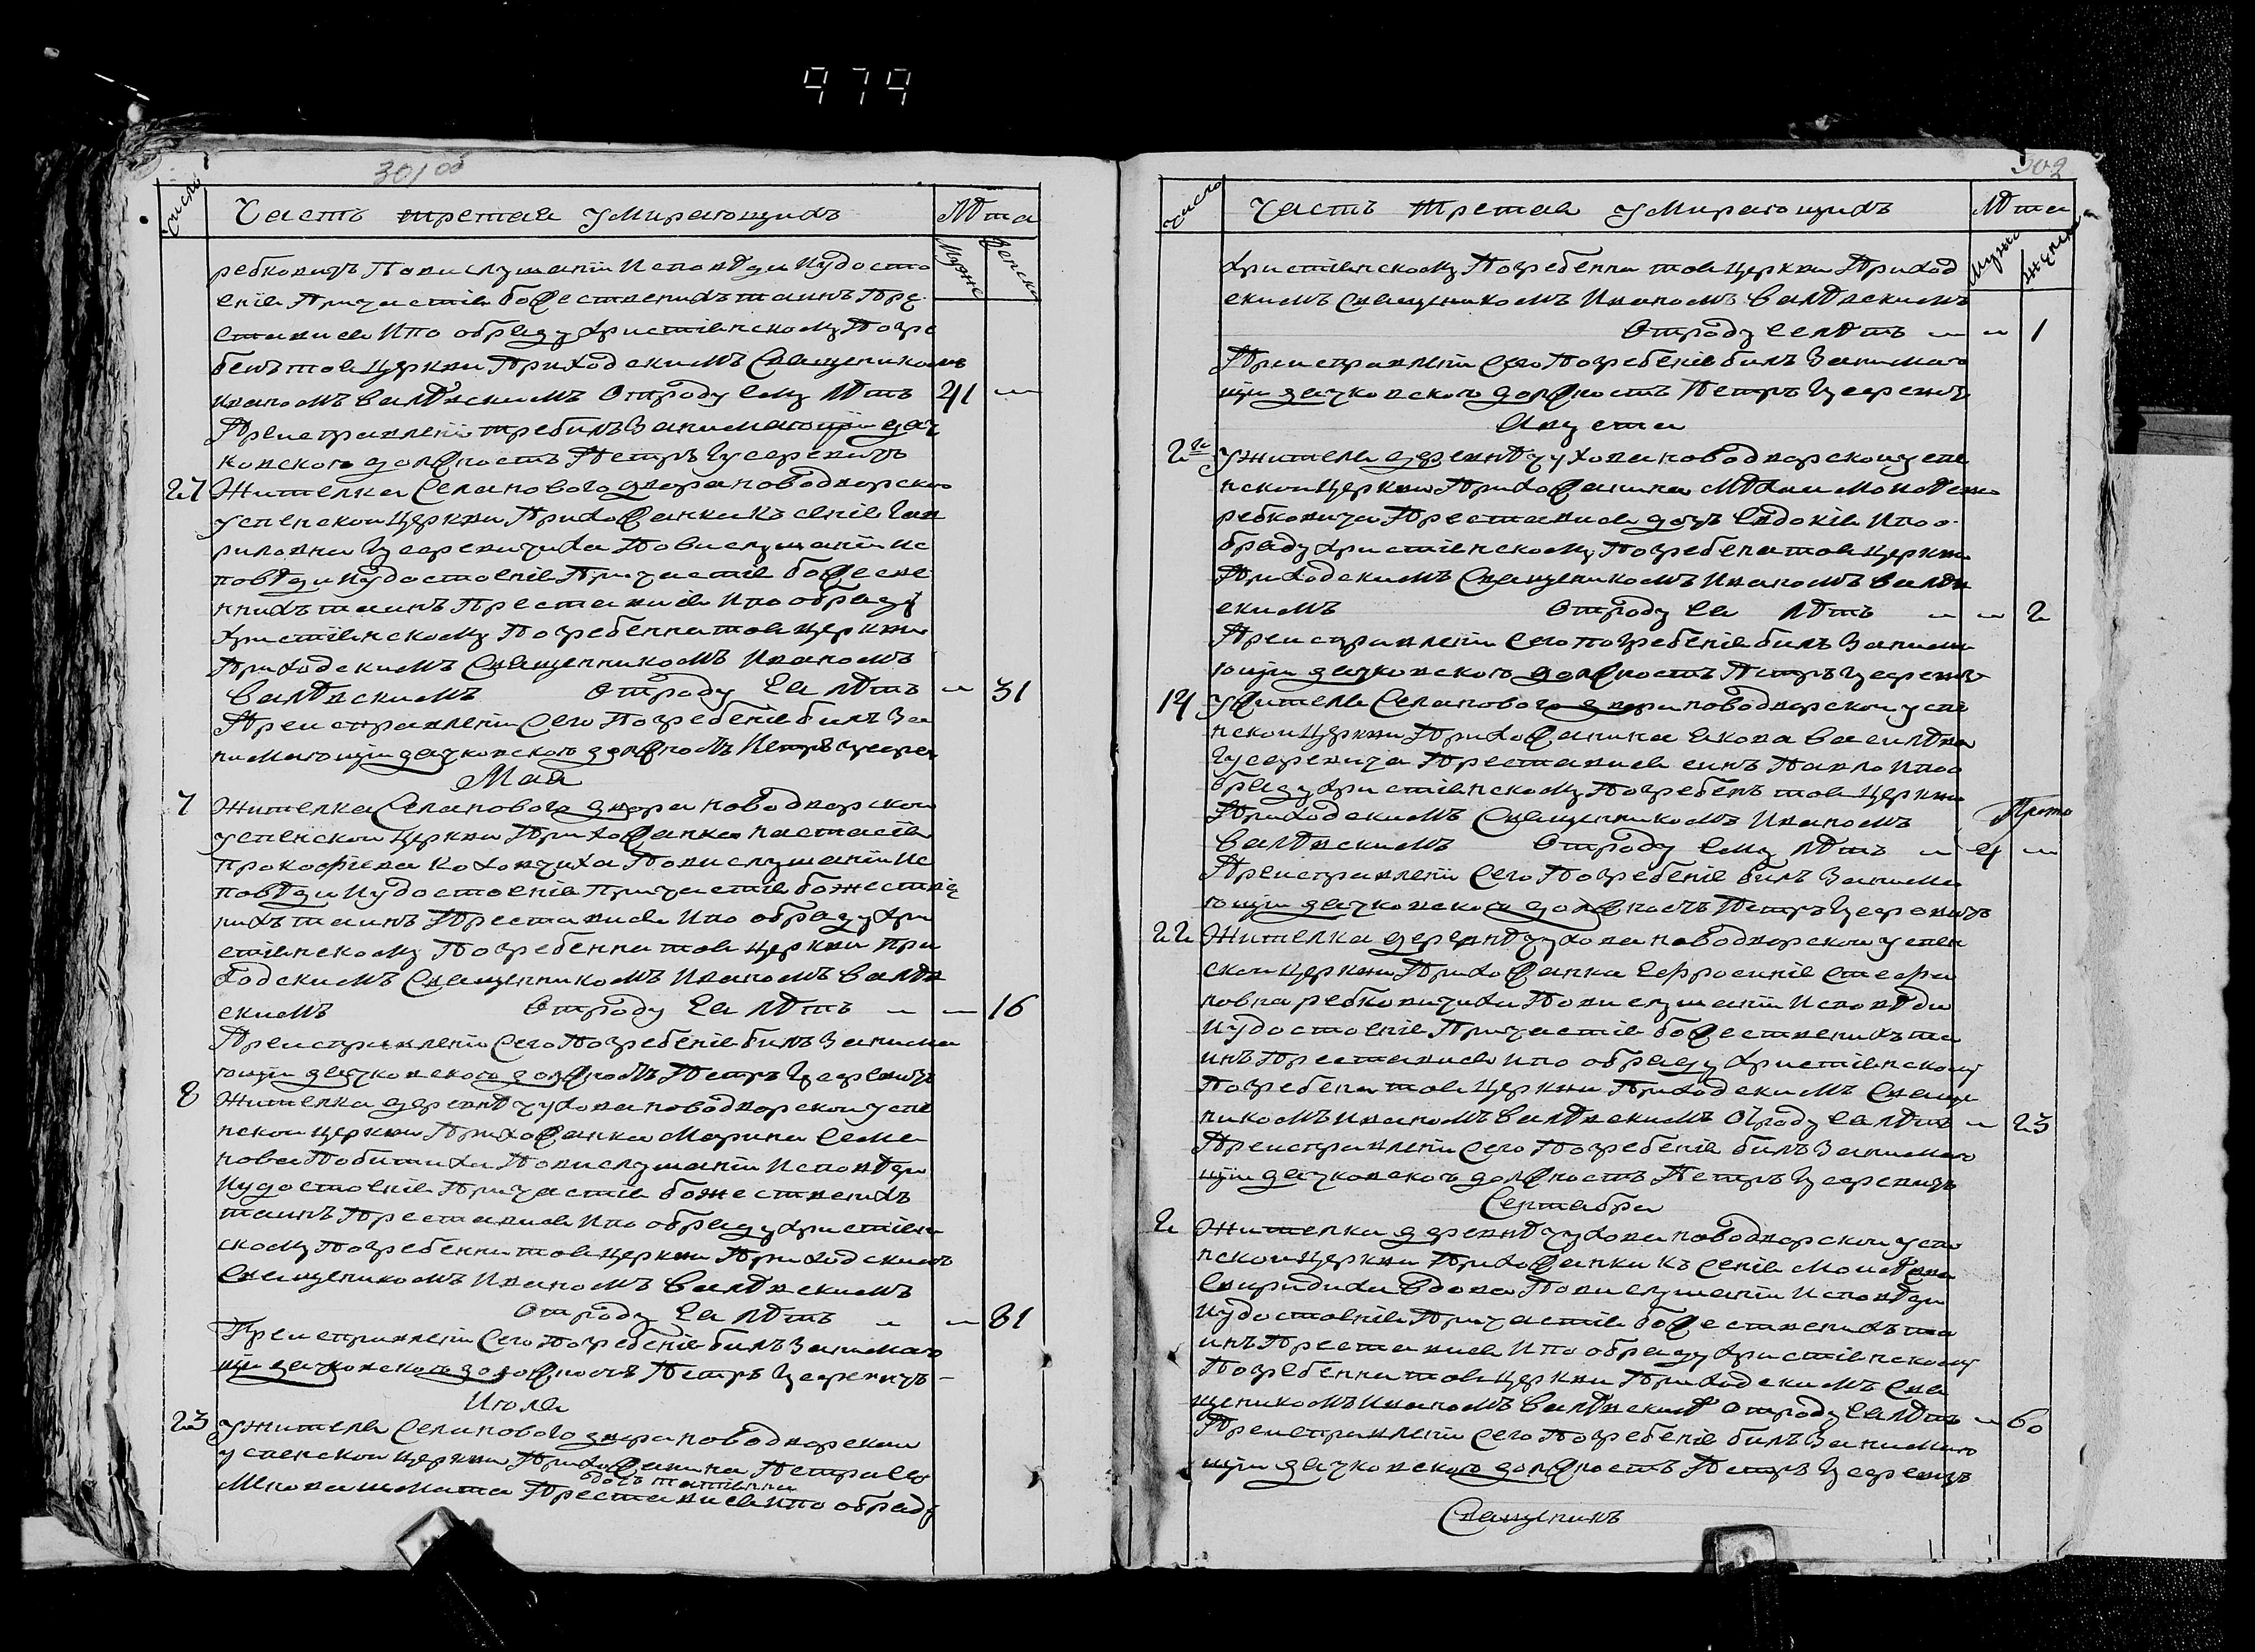 979
301 об
Число Часть третая Умирающихъ Лѣта
Мужес Женска
ребковичъ По вислушаніи Исповѣди И удосто
еніе Причастіе божественихъ таинъ Пре
ставися И по обряду христіенскому Погре
бенъ тоя церкви Приходскимъ Священикомъ
Иваномъ Валѣвскимъ Отроду Ему Лѣтъ 41 —
При исправленіи требилъ Занимающи дяч
ковского должность Петръ Цеаревичъ
27 Жителка Селанового двора новодворско
успенской Церкви Прихожанка Ксеніе Гав
риловна Цеаревичиха По вислушаніи Ис
повѣди И удостоеніе Причастіе божестве
ннихъ таинъ Преставися И по обряду
христіенскому Погребенна тоя церкви
Приходскимъ Священникомъ Иваномъ
Валѣвскимъ Отроду Ея лѣтъ — 31
При исправленіи Сего Погребеніе билъ За
нимающи дячковского должность Петръ
Мая
7 Жителка Селанового двора новодворской
успенской Церкви Прихожанка настасіе
Прокофіева По вислушаніи Ис
повѣди И удостоеніе Причастіе божестве
нихъ таинъ Преставися И по обряду хри
стіенскому Погребенна тоя церкви при
ходскимъ Священникомъ Иваномъ Валѣв
скимъ Отроду Ея лѣтъ — — 16
При исправленіи Сего Погребеніе билъ Занима
ющи дячковского должность Петръ Цеаревичъ
8 Жителка деревнѣ чухова новодворской успе
нской церкви Прихожанка Марина Семе
нова По вислушаніи Исповѣди
И удостоеніе Причастіе божественихъ
таинъ Преставися И по обряду христіен
скому Погребенна тоя церкви Приходскимъ
Священикомъ Иваномъ Валѣвскимъ
Отроду Ея лѣтъ — — 81
При исправленіи Сего Погребеніе билъ Занимаю
щи дячковского должность Петръ Цеаревичъ
Июля
23 У жителя Селанового двора новодворской
успенской церкви Прихожанина Петра Се
дочь татіянна
Преставися И по обряду
302
Число Часть Третая Умирающихъ Лѣта
Мужес Женска
христіенскому Погребенна тоя церкви Приход
скимъ Священникомъ Иваномъ Валѣвскимъ
Отроду Ея лѣтъ — — 1
При исправленіи Сего Погребеніе билъ Занимаю
щи дячковского должность Петръ Цеаревичъ
Августа
2го У жителя деревнѣ чухова новодворской успе
нской Церкви Прихожанина
ребковича Преставися дочь Евдокіе И по о
бряду христіенскому Погребена тоя церкви
Приходскимъ Священикомъ Иваномъ Валѣв
скимъ Отроду Ея лѣтъ — — 2
При исправленіи Сего погребеніе билъ Занима
ющи дячковского должность Петръ Цеаревичъ
14 У жителя Селанового двора новодворской успе
нской Церкви Прихожанина Якова Василѣва
Цеаревича Преставися синъ Павло И по о
бряду христіенскому Погребенъ тоя Церкви
Приходскимъ Священникомъ Иваномъ
Валѣвскимъ Отроду Ему лѣтъ — 4 —
При исправленіи Сего Погребеніе билъ Занима
ющи дячковского должность Петръ Цеаревичъ
22 Жителка деревнѣ чухова новодворской успен
ской церкви Прихожанка Еефросиніе Стефа
новна ребковичиха По вислушаніи Исповѣди
И удостоеніе Причастіе божественихъ та
инъ Преставися И по обряду христіенскому
Погребена тоя Церкви Приходскимъ Свяще
никомъ Иваномъ Валѣвскимъ Отроду Ея лѣтъ — 23
При исправленіи Сего Погребеніе билъ Занимаю
щи дячковского должность Петръ Цеаревичъ
Септабра
2 Жителка деревнѣ чухова новодворской успе
нской Церкви Прихожанка Ксеніе
вдова По вислушаніи Исповѣди
И удостоеніе Причастіе божественихъ та
инъ Преставися И по обряду христіенскому
Погребенна тоя церкви Приходскимъ Свя
щеникомъ Иваномъ Валѣвскимъ Отроду Ея лѣтъ — 60
При исправленіи Сего Погребеніе билъ Занимаю
щи дячковского должность Петръ Цеаревичъ
Священикъ